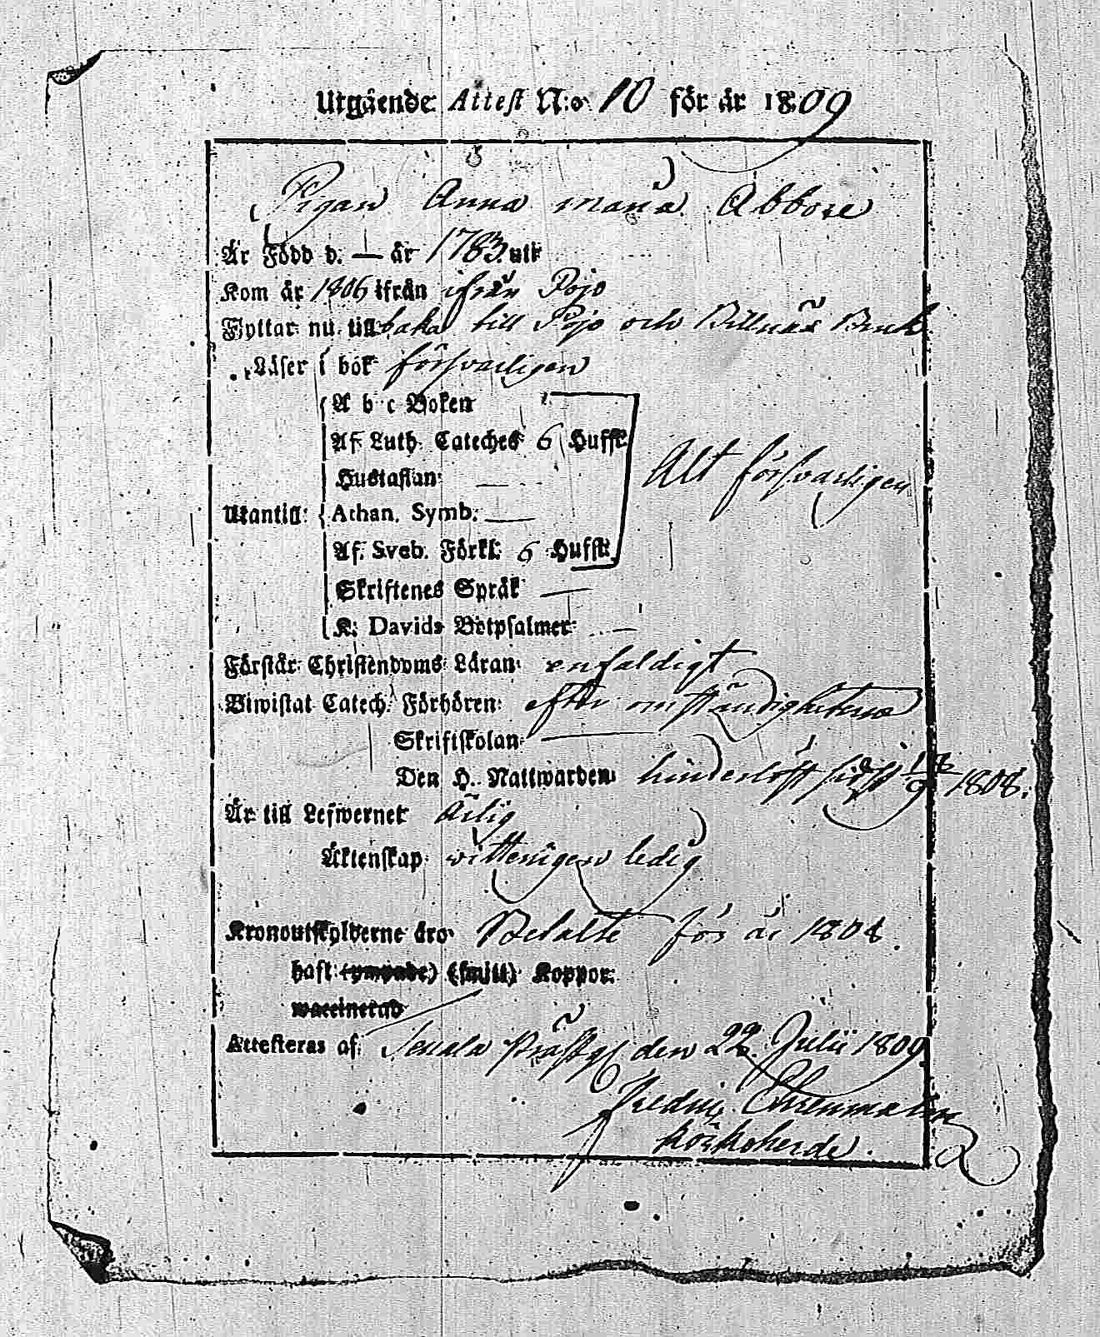 Utgående Attest N:o 10 för år 1809
Pigan Anna Maria Abbore
Är Född d. — år 1783. uti
Kom år 1806 ifrån ifrån Pojo
Flyttar nu till baka till Pojo och Billnäs Bruk
Läser i bok försvarligen
A b c Boken
Af Luth. Cateches 6 Hufst.
Hustaflan: —
Alt försvarligen
Utantill: Athan. Symb: —
Af. Sveb. Förkl: 6 Hufst:
Skriftenes Språk —
K: Davids Botpsalmer: —
Förstår Christendoms Läran: enfaldigt
Biwistat Catech. Förhören: efter omständigheterna
Skriftskolan —
Den H. Nattwarden hinderlöst sidst 1808.
Är till Lefwernet Ärlig
Äktenskap: witterligen ledig
Kronoutskylderne äro Betalte för år 1808.
haft (ympade) (smitt) Koppor:
waccinerad
Attesteras af: Tenala Prästg. den 22 Julii 1809.
Fredric Ehrenmalm
Kyrkoherde.